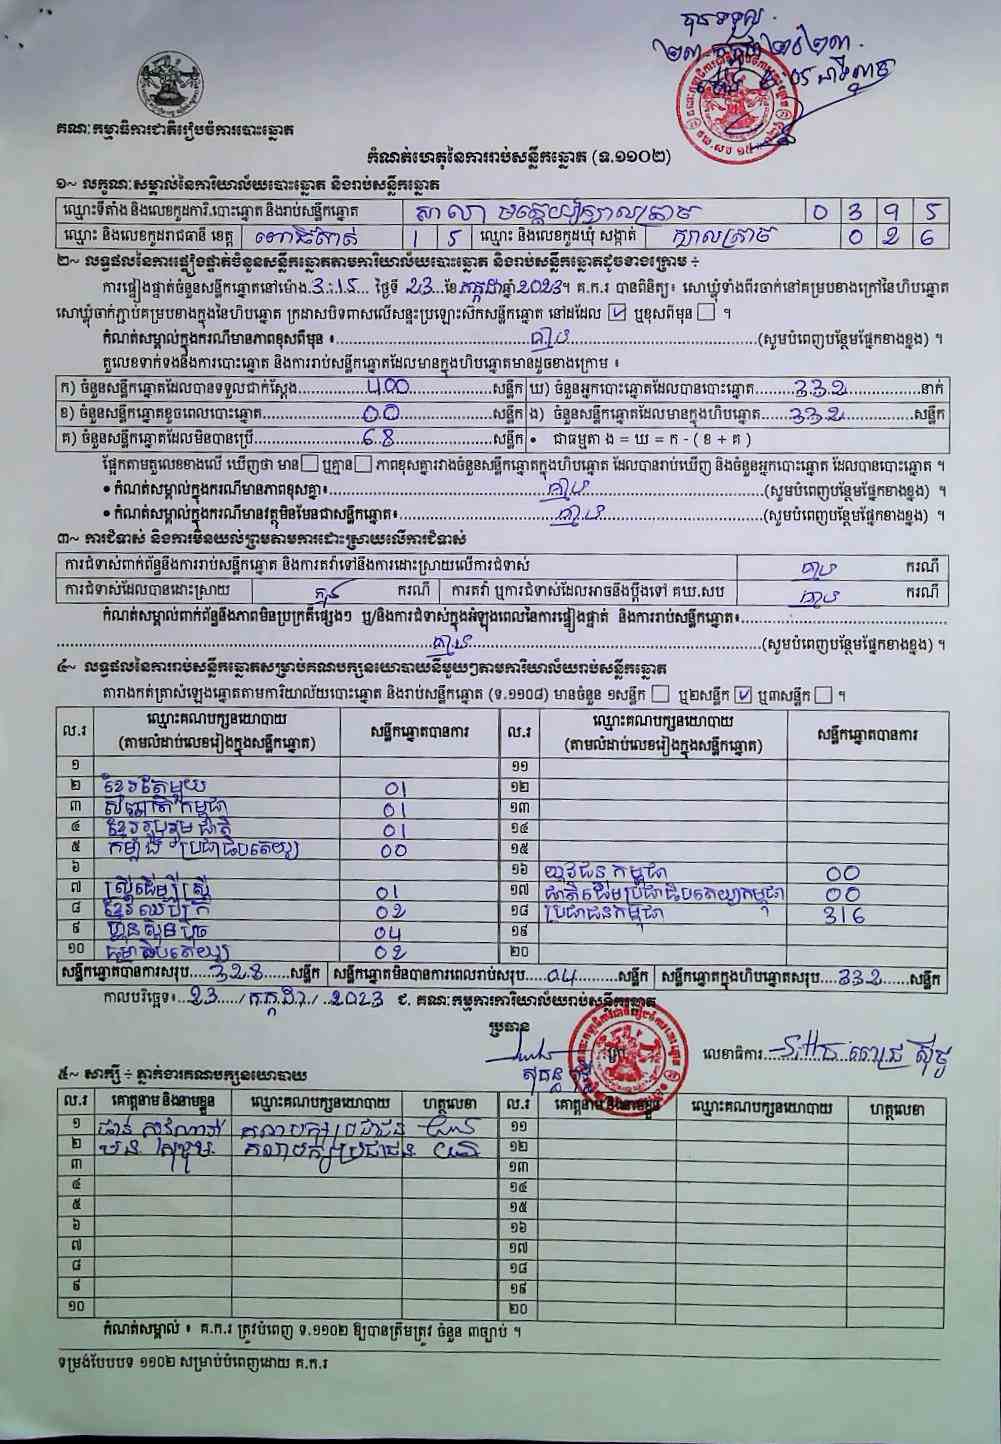 បានទទួល
២៣ កក្កដា ២០២៣
គណៈកម្មាធិការជាតិរៀបចំការបោះឆ្នោត
កំណត់ហេតុនៃការរាប់សន្លឹកឆ្នោត (ទ.១១០២)
១~ លក្ខណៈសម្គាល់នៃការិយាល័យបោះឆ្នោត និងរាប់សន្លឹកឆ្នោត
ឈ្មោះទីតាំង និងលេខកូដការិ.បោះឆ្នោត និងរាប់សន្លឹកឆ្នោត សាលា មត្តេយ្យក្បាលត្រាច 0 3 9 5
ឈ្មោះ និងលេខកូដរាជធានី ខេត្ត ពោធិ៍សាត់ 1 5 ឈ្មោះ និងលេខកូដឃុំ សង្កាត់ ក្បាលត្រាច 0 2 6
២~ លទ្ធផលនៃការផ្ទៀងផ្ទាត់ចំនួនសន្លឹកឆ្នោតតាមការិយាល័យបោះឆ្នោត និងរាប់សន្លឹកឆ្នោតដូចខាងក្រោម ÷
ការផ្ទៀងផ្ទាត់ចំនួនសន្លឹកឆ្នោតនៅម៉ោង.3:15... ថ្ងៃទី 23..ខែកក្កដាឆ្នាំ2023។ គ.ក.រ បានពិនិត្យ៖ សោឃ្លុំទាំងពីរចាក់នៅគម្របខាងក្រៅនៃហិបឆ្នោត
សោឃ្លុំចាក់ភ្ជាប់គម្របខាងក្នុងនៃហិបឆ្នោត ក្រដាសបិទពាសលើសន្ទះប្រឡោះស៊កសន្លឹកឆ្នោត នៅដដែល ☑ ឬខុសពីមុន ☐ ។
កំណត់សម្គាល់ក្នុងករណីមានភាពខុសពីមុន ៖ គ្មាន (សូមបំពេញបន្ថែមផ្នែកខាងខ្នង) ។
តួលេខទាក់ទងនឹងការបោះឆ្នោត និងការរាប់សន្លឹកឆ្នោតដែលមានក្នុងហិបឆ្នោតមានដូចខាងក្រោម ៖
ក) ចំនួនសន្លឹកឆ្នោតដែលបានទទួលជាក់ស្តែង 400 សន្លឹក ឃ) ចំនួនអ្នកបោះឆ្នោតដែលបានបោះឆ្នោត 332 នាក់
ខ) ចំនួនសន្លឹកឆ្នោតខូចពេលបោះឆ្នោត 00 សន្លឹក ង) ចំនួនសន្លឹកឆ្នោតដែលមានក្នុងហិបឆ្នោត 332 សន្លឹក
គ) ចំនួនសន្លឹកឆ្នោតដែលមិនបានប្រើ 68 សន្លឹក • ជាធម្មតា ង = ឃ = ក - ( ខ + គ )
ផ្អែកតាមតួលេខខាងលើ ឃើញថា មាន☐ ឬគ្មាន☐ ភាពខុសគ្នារវាងចំនួនសន្លឹកឆ្នោតក្នុងហិបឆ្នោត ដែលបានរាប់ឃើញ និងចំនួនអ្នកបោះឆ្នោត ដែលបានបោះឆ្នោត ។
• កំណត់សម្គាល់ក្នុងករណីមានភាពខុសគ្នា៖ គ្មាន (សូមបំពេញបន្ថែមផ្នែកខាងខ្នង) ។
• កំណត់សម្គាល់ក្នុងករណីមានវត្ថុមិនមែនជាសន្លឹកឆ្នោត៖ គ្មាន (សូមបំពេញបន្ថែមផ្នែកខាងខ្នង) ។
៣~ ការជំទាស់ និងការមិនយល់ព្រមតាមការដោះស្រាយលើការជំទាស់
ការជំទាស់ពាក់ព័ន្ធនឹងការរាប់សន្លឹកឆ្នោត និងការតវ៉ាទៅនឹងការដោះស្រាយលើការជំទាស់ គ្មាន ករណី
ការជំទាស់ដែលបានដោះស្រាយ ករណី ការតវ៉ា ឬការជំទាស់ដែលអាចនឹងប្តឹងទៅ គឃ.សប គ្មាន ករណី
កំណត់សម្គាល់ពាក់ព័ន្ធនឹងភាពមិនប្រក្រតីផ្សេងៗ ឬ/និងការជំទាស់ក្នុងអំឡុងពេលនៃការផ្ទៀងផ្ទាត់ និងការរាប់សន្លឹកឆ្នោត៖
គ្មាន (សូមបំពេញបន្ថែមផ្នែកខាងខ្នង) ។
៤~ លទ្ធផលនៃការរាប់សន្លឹកឆ្នោតសម្រាប់គណបក្សនយោបាយនីមួយៗតាមការិយាល័យរាប់សន្លឹកឆ្នោត
តារាងកត់ត្រាសំឡេងឆ្នោតតាមការិយាល័យបោះឆ្នោត និងរាប់សន្លឹកឆ្នោត (ទ.១១០៨) មានចំនួន ១សន្លឹក ☐ ឬ២សន្លឹក ☑ ឬ៣សន្លឹក ☐ ។
ល.រ ឈ្មោះគណបក្សនយោបាយ (តាមលំដាប់លេខរៀងក្នុងសន្លឹកឆ្នោត) សន្លឹកឆ្នោតបានការ ល.រ ឈ្មោះគណបក្សនយោបាយ (តាមលំដាប់លេខរៀងក្នុងសន្លឹកឆ្នោត) សន្លឹកឆ្នោតបានការ
១ ១១
២ ខ្មែរតែមួយ 01 ១២
៣ សញ្ជាតិកម្ពុជា 01 ១៣
៤ ខ្មែររួបរួមជាតិ 01 ១៤
៥ កម្លាំងប្រជាធិបតេយ្យ 00 ១៥
៦ ១៦ យុវជនកម្ពុជា 00
៧ ស្ត្រីដើម្បីស្ត្រី 01 ១៧ ជាតិដើមប្រជាធិបតេយ្យកម្ពុជា 00
៨ ខ្មែរឈប់ក្រ 02 ១៨ ប្រជាជនកម្ពុជា 316
៩ ហ៊្វុនស៊ិនប៉ិច 04 ១៩
១០ ធម្មាធិបតេយ្យ 02 ២០
សន្លឹកឆ្នោតបានការសរុប 328 សន្លឹក សន្លឹកឆ្នោតមិនបានការពេលរាប់សរុប 04 សន្លឹក សន្លឹកឆ្នោតក្នុងហិបឆ្នោតសរុប 332 សន្លឹក
កាលបរិច្ឆេទ៖ 23 / កក្កដា / 2023 ជ. គណៈកម្មការការិយាល័យរាប់សន្លឹកឆ្នោត
ប្រធាន
លេខាធិការ
៥~ សាក្សី ÷ ភ្នាក់ងារគណបក្សនយោបាយ
ល.រ គោត្តនាម និងនាមខ្លួន ឈ្មោះគណបក្សនយោបាយ ហត្ថលេខា ល.រ គោត្តនាម និងនាមខ្លួន ឈ្មោះគណបក្សនយោបាយ ហត្ថលេខា
១ គណបក្សប្រជាជន ១១
២ គណបក្សប្រជាជន ១២
៣ ១៣
៤ ១៤
៥ ១៥
៦ ១៦
៧ ១៧
៨ ១៨
៩ ១៩
១០ ២០
កំណត់សម្គាល់ ៖ គ.ក.រ ត្រូវបំពេញ ទ.១១០២ ឱ្យបានត្រឹមត្រូវ ចំនួន ៣ច្បាប់ ។
ទម្រង់បែបបទ ១១០២ សម្រាប់បំពេញដោយ គ.ក.រ